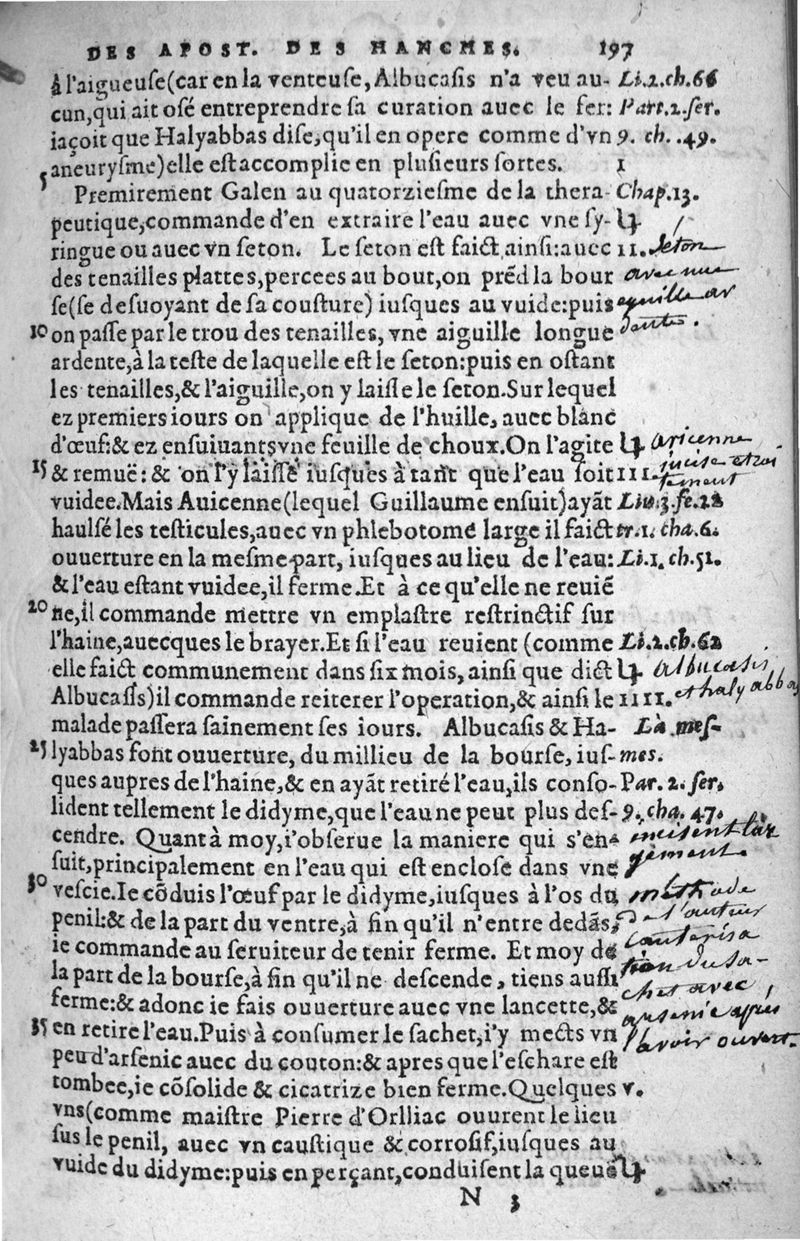 DES APOST. DES HANCHES. 197
à l'aigueuse(car en la venteuse, Albucasis n'a veu au- Li.2.ch.66
cun, qui ait osé entreprendre sa curation auec le fer: Part.2.ser.
iaçoit que Halyabbas dise, qu'il en opere comme d'vn 9. ch. .49.
aneurysme) elle est accomplie en plusieurs sortes. 1
5
Premirement Galen au quatorziesme de la thera- Chap.13.
peutique, commande d'en extraire l'eau auec vne sy-
ringue ou auec vn seton. Le seton est faict, ainsi: auec 11. seton
des tenailles plattes, percees au bout, on prẽd la bour auec une
se(se desuoyant de sa cousture) iusques au vuide: puis eguille ar
10 on passe par le trou des tenailles, vne aiguille longue dante.
ardente, à la teste de laquelle est le seton: puis en ostant
les tenailles, & l'aiguille, on y laisse le seton. Sur lequel
ez premiers iours on applique de l'huille, auec blanc
d'œuf: & ez ensuiuants vne feuille de choux. On l'agite Auicenne
15 & remuë: & on l'y laisse iusques à tant que l'eau soit 111. incise
vuidee. Mais Auicenne (lequel Guillaume ensuit) ayãt Liu.3.fe.22
haulsé les testicules, auec vn phlebotome large il faict tr.1. cha.6.
ouuerture en la mesme part, iusques au lieu de l'eau: Li.1. ch.51.
& l'eau estant vuidee, il ferme. Et à ce qu'elle ne reuiẽ
20 ne, il commande mettre vn emplastre restrinctif sur
l'haine, auecques le brayer. Et si l'eau reuient (comme Li.2.ch.62
elle faict communement dans six mois, ainsi que dict Albucasis
Albucasis) il commande reiterer l'operation, & ainsi le 1111. et halyabbas
malade passera sainement ses iours. Albucasis & Ha- Là mes-
25 lyabbas font ouuerture, du millieu de la bourse, ius- mes.
ques aupres de l'haine, & en ayãt retiré l'eau, ils conso- Par. 2. ser.
lident tellement le didyme, que l'eau ne peut plus des- 9. cha. 47.
cendre. Quant à moy, i'obserue la maniere qui s'en- incisent lar
suit, principalement en l'eau qui est enclose dans vne gement
30 vescie. Ie cõduis l'œuf par le didyme, iusques à l'os du methode
penil: & de la part du ventre, à fin qu'il n'entre dedãs, de l'auteur
ie commande au seruiteur de tenir ferme. Et moy de cauterisa
la part de la bourse, à fin qu'il ne descende, tiens aussi tion du sa-
ferme: & adonc ie fais ouuerture auec vne lancette, & chet avec
35 en retire l'eau. Puis à consumer le sachet, i'y mects vn arsenic apres
peu d'arsenic auec du couton: & apres que l'eschare est l'avoir ouvert.
tombee, ie cõsolide & cicatrize bien ferme. Quelques v.
vns (comme maistre Pierre d'Orlliac ouurent le lieu
sus le penil, auec vn caustique & corrosif, iusques au
vuide du didyme: puis en perçant, conduisent la queuë
N 3